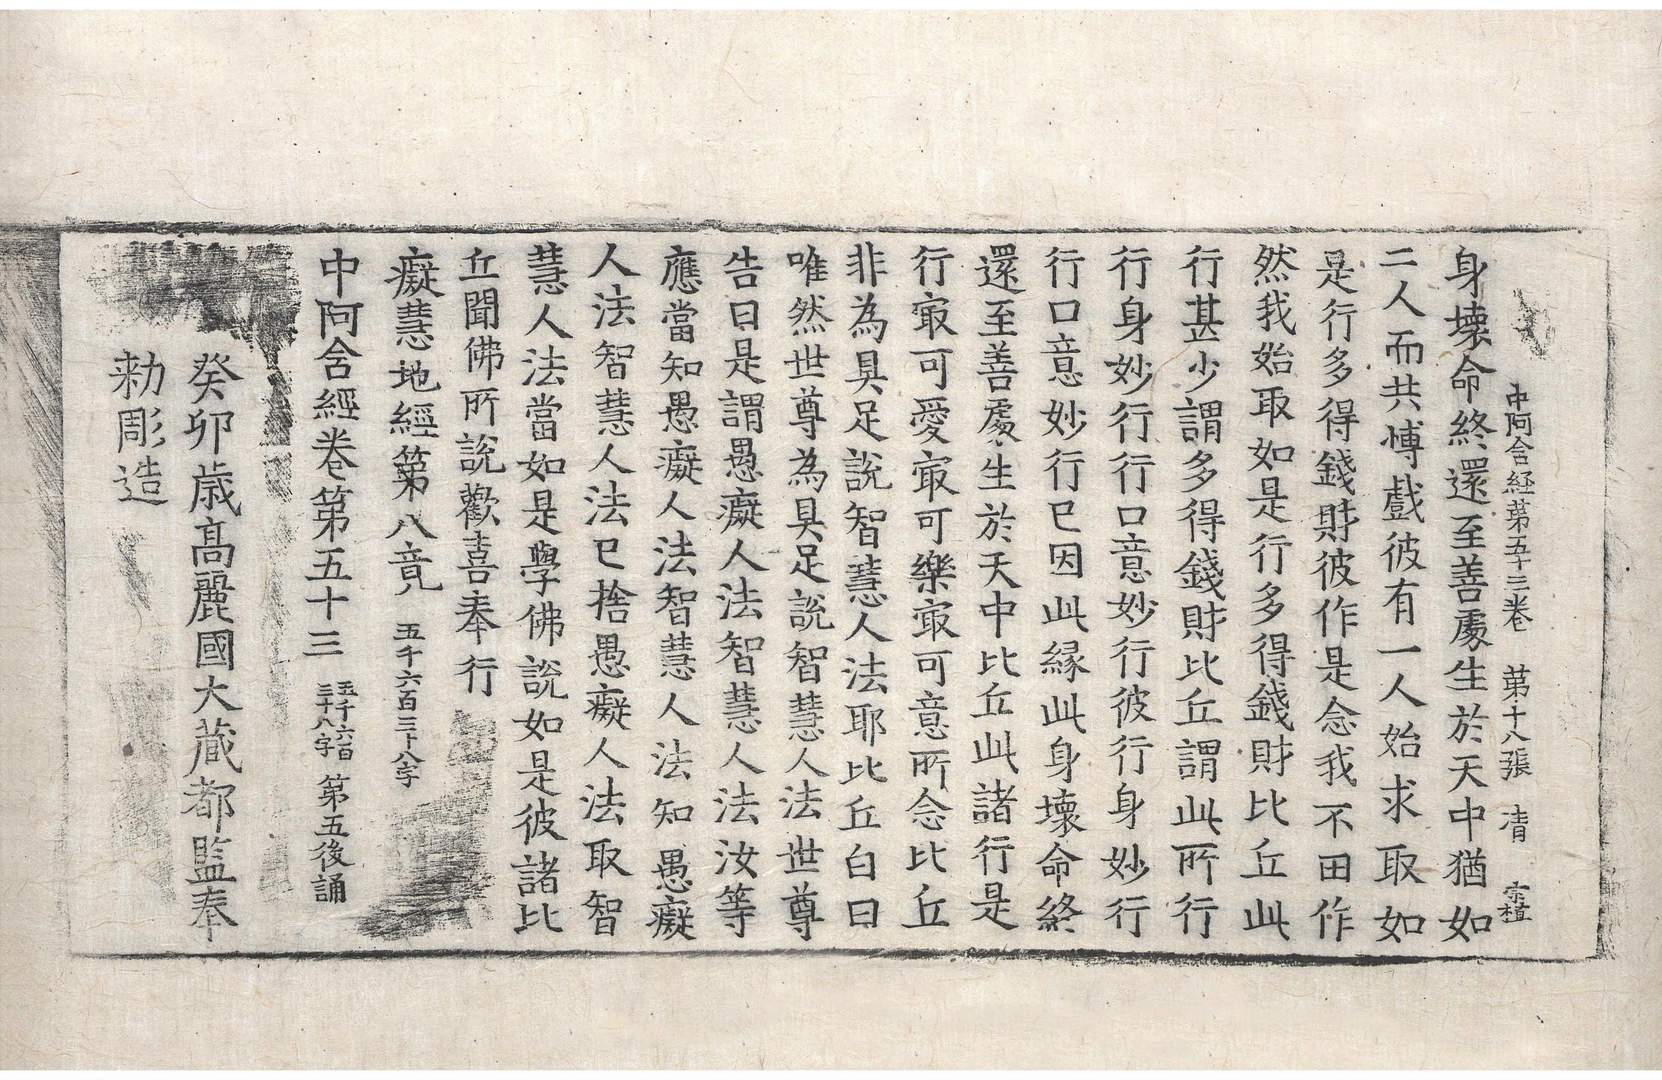 中阿含経苐五十三巻 苐十八張 凊 宗植
身壊命終還至善處生於天中猶如
二人而共博戲彼有一人始求取如
是行多得錢財彼作是念我不田作
然我始取如是行多得錢財比丘此
行甚少謂多得錢財比丘謂此所行
行身妙行行口意妙行彼行身妙行
行口意妙行已因此縁此身壊命終
還至善處生於天中比丘此諸行是
行㝡可愛㝡可樂㝡可意所念比丘
非為具足說智慧人法耶比丘白曰
唯然世尊為具足說智慧人法世尊
告曰是謂愚癡人法智慧人法汝等
應當知愚癡人法智慧人法知愚癡
人法智慧人法已捨愚癡人法取智
慧人法當如是學佛說如是彼諸比
丘聞佛所說歡喜奉行
癡慧地經苐八竟 五千六百三十八字
中阿含經卷第五十三 五千六百三十八字 第五後誦
癸卯歳髙麗國大藏都監奉
勑彫造